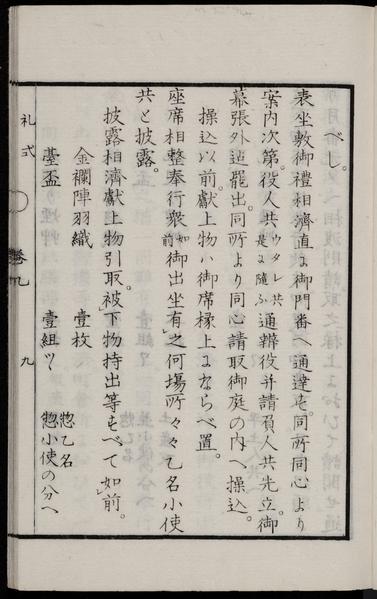 べし。
表坐敷御禮相濟直に御門番へ通達も。同所同心より
案内次第。役人共ウタレ共是に隨ふ通辨役并請負人共先立。御
幕張外迄罷出。同所より同心請取御庭の内へ操込。
操込以前。獻上物ハ御席椽上にならべ置。
座席相整奉行衆如前御出坐有之何塲所々々乙名小使
共と披露。
披露相濟獻上物引取。被下物持出等すべて如前。
金襴陣羽織 壹枚
臺盃 壹組ツヽ 惣乙名
惣小使の分へ
礼式 卷九 九